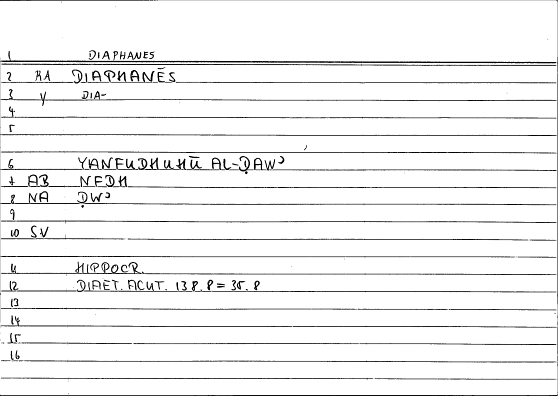 1 DIAPHANES
2 KA DIAPHANĒS
3 V DIA-
4
5
6 YANFUDHUHŪ AL-ḌAWʾ
7 AB NFDH
8 NA ḌWʾ
9
10 SV
11 HIPPOCR.
12 DIAET. ACUT. 138.8 = 35.8
13
14
15
16